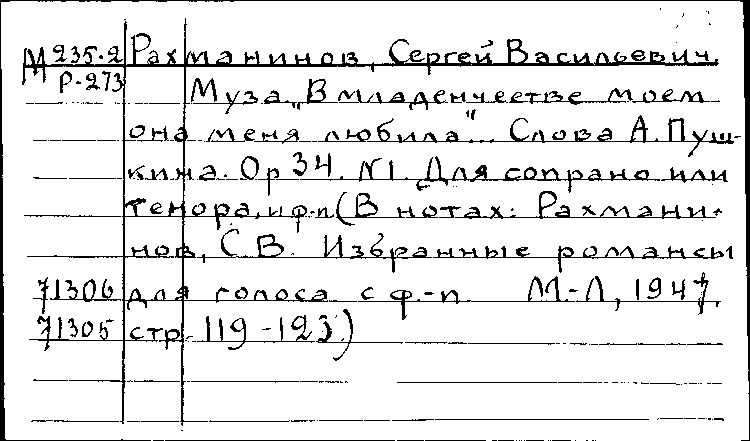 М 235.2 Рахманинов, Сергей Васильевич.
Р-273 Муза „В младенчестве моем
она меня любила"... Слова А. Пуш-
кина. Op 34. N1. Для сопрано или
тенора, и ф-п (В нотах: Рахмани-
нов, С В. Избранные романсы
71306 для голоса с ф.-п М-Л, 1947,
71305 стр. 119-123.)